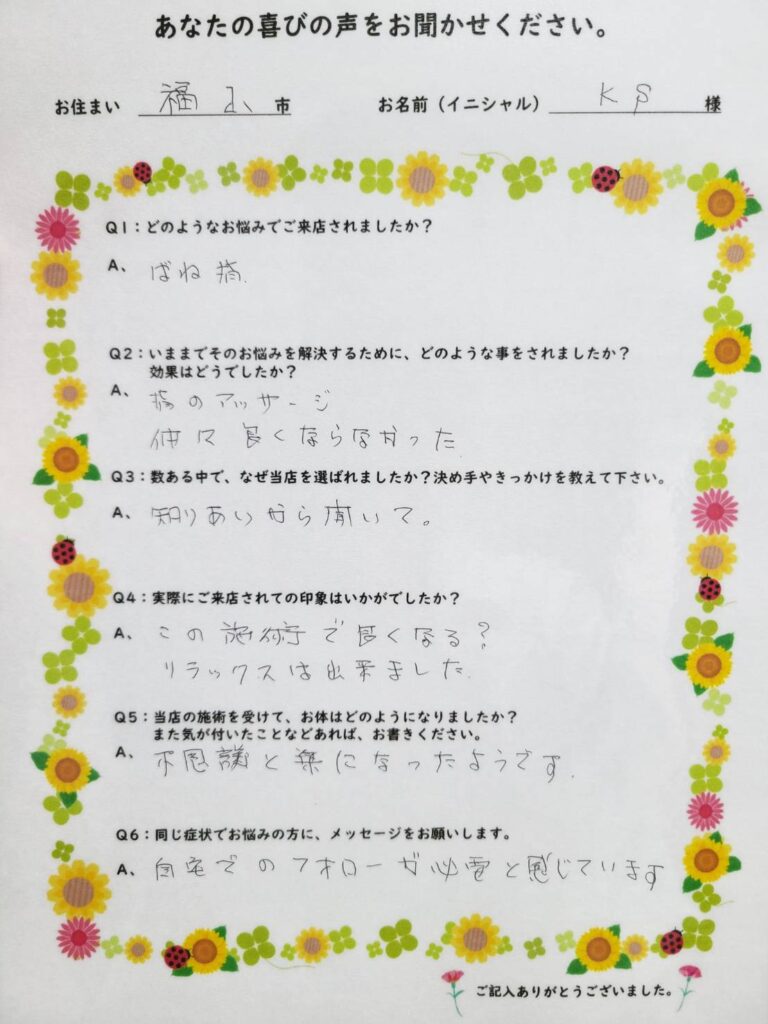 あなたの喜びの声をお聞かせください。
お住まい 福山 市 お名前（イニシャル） K S 様
Q1：どのようなお悩みでご来店されましたか？
A、ばね指
Q2：いままでそのお悩みを解決するために、どのような事をされましたか？
効果はどうでしたか？
A、指のマッサージ
仲々良くならなかった
Q3：数ある中で、なぜ当店を選ばれましたか？決め手やきっかけを教えて下さい。
A、知りあいから聞いて。
Q4：実際にご来店されての印象はいかがでしたか？
A、この施術で良くなる？
リラックスは出来ました
Q5：当店の施術を受けて、お体はどのようになりましたか？
また気が付いたことなどあれば、お書きください。
A、不思議と楽になったようです．
Q6：同じ症状でお悩みの方に、メッセージをお願いします。
A、自宅でのフォローが必要と感じています
ご記入ありがとうございました。